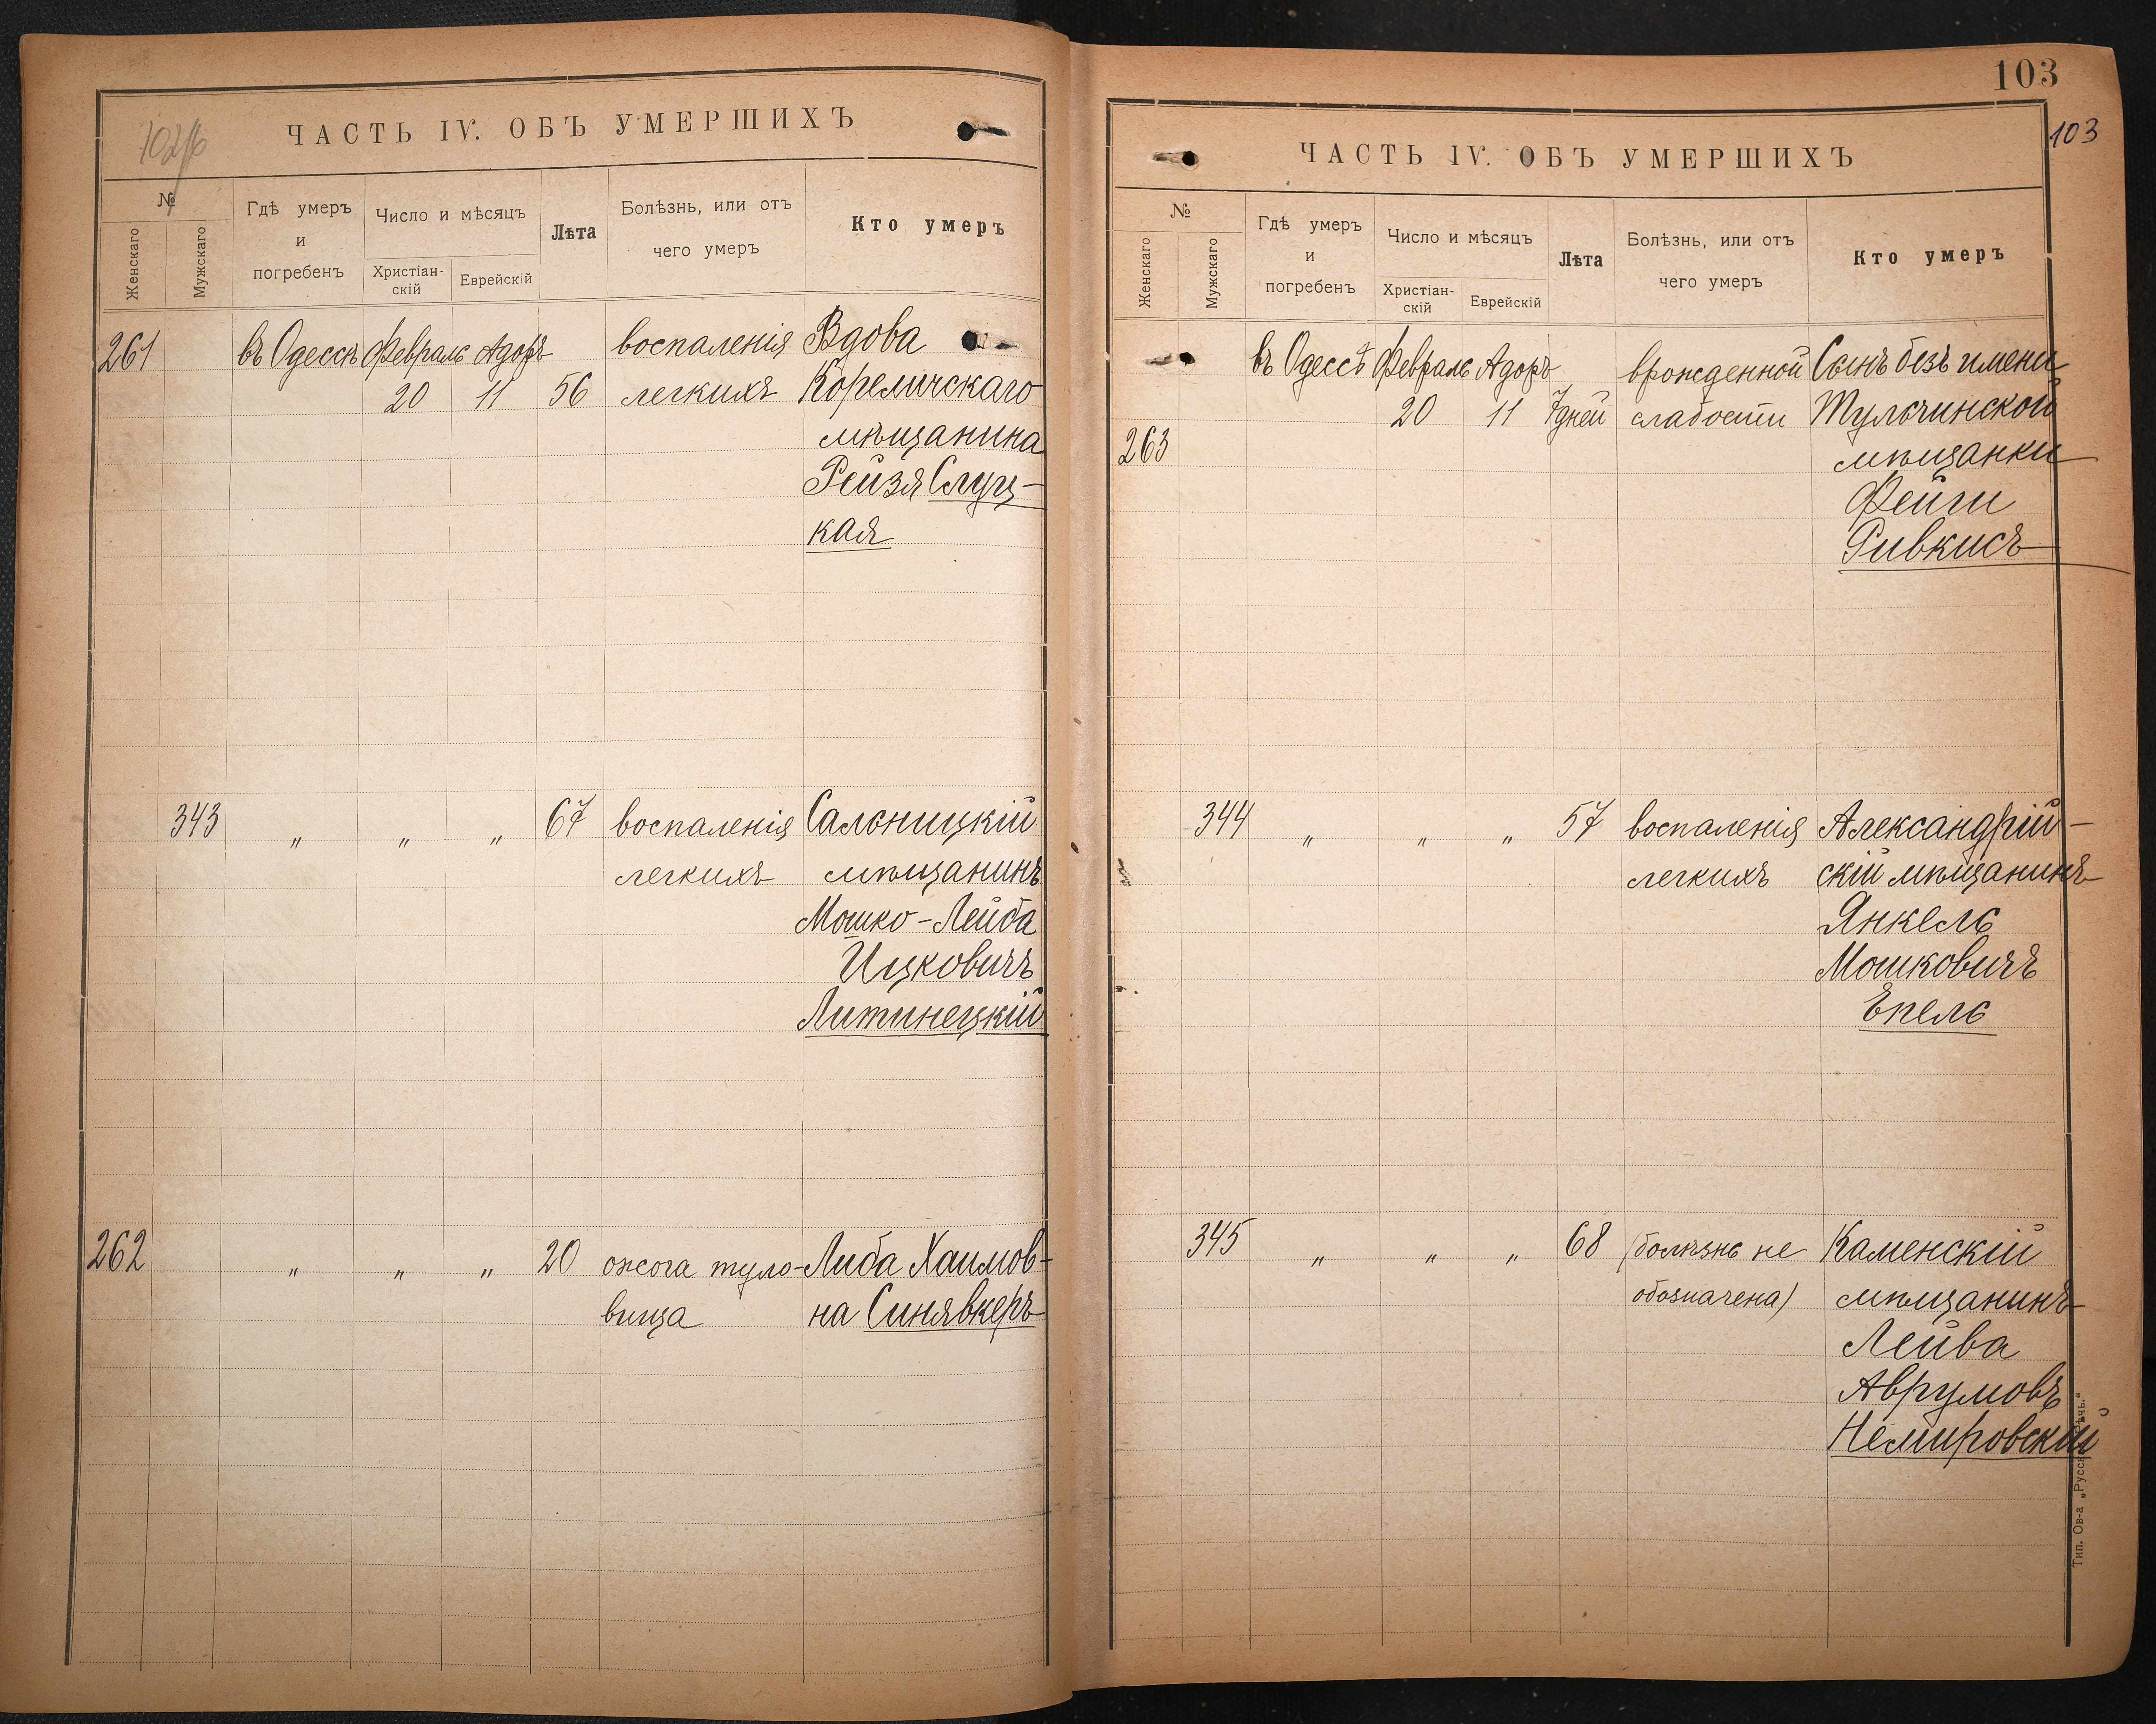 102/б
ЧАСТЬ IV. ОБЪ УМЕРШИХЪ
№
Женскаго
Мужскаго
Гдѣ умеръ
и
погребенъ
Число и мѣсяцъ
Христіан-
скій
Еврейскій
Лѣта
Болѣзнь, или отъ
чего умеръ
Кто умеръ
261 въ Одессѣ Февраль Адоръ воспаленія Вдова
20 11 56 легкихъ Кореличскаго
мѣщанина
Рейзя Слуц-
кая
343 „ „ „ 67 воспаленія Сальницкій
легкихъ мѣщанинъ
Мошко-Лейба
Ицковичъ
Литинецкій
262 „ „ „ 20 ожога туло- Либа Хаимов-
вища на Синявкеръ
103
103
ЧАСТЬ IV. ОБЪ УМЕРШИХЪ
№
Женскаго
Мужскаго
Гдѣ умеръ
и
погребенъ
Число и мѣсяцъ
Христіан-
скій
Еврейскій
Лѣта
Болѣзнь, или отъ
чего умеръ
Кто умеръ
въ Одессѣ Февраль Адоръ врожденной Сынъ безъ имени
20 11 7 дней слабости Тульчинской
263 мѣщанки
Фейги
Ривкисъ
344 „ „ „ 57 воспаленія Александрій-
легкихъ скій мѣщанинъ
Янкель
Мошковичъ
Епель
345 „ „ „ 68 (болѣзнь не Каменскій
обозначена) мѣщанинъ
Лейва
Аврумовъ
Немировскій
Тип. Ов-а „Русск. Рѣчь.“